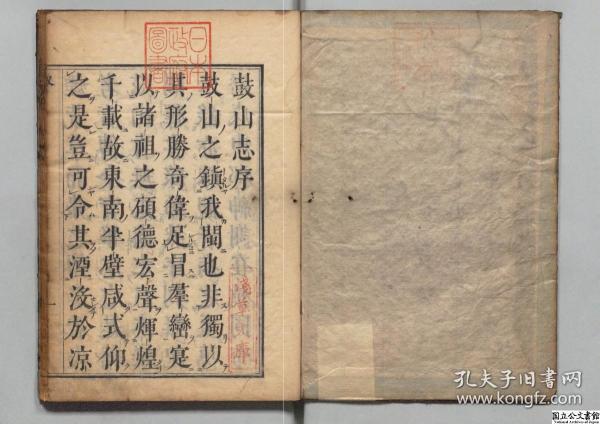 鼓山志序
鼓山之鎮我閩也非獨以
其形勝奇偉足冒羣巒寔
以諸祖之碩德宏聲煇煌
千載故東南半壁咸式仰
之是豈可令其湮没於凉
日本
政府
圖書
孔夫子旧书网
www.kongfz.com
国立公文書館
National Archives of Japan